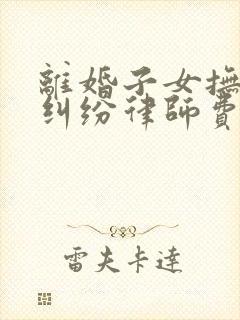 離婚子女撫
糾紛律師費
雷夫卡達